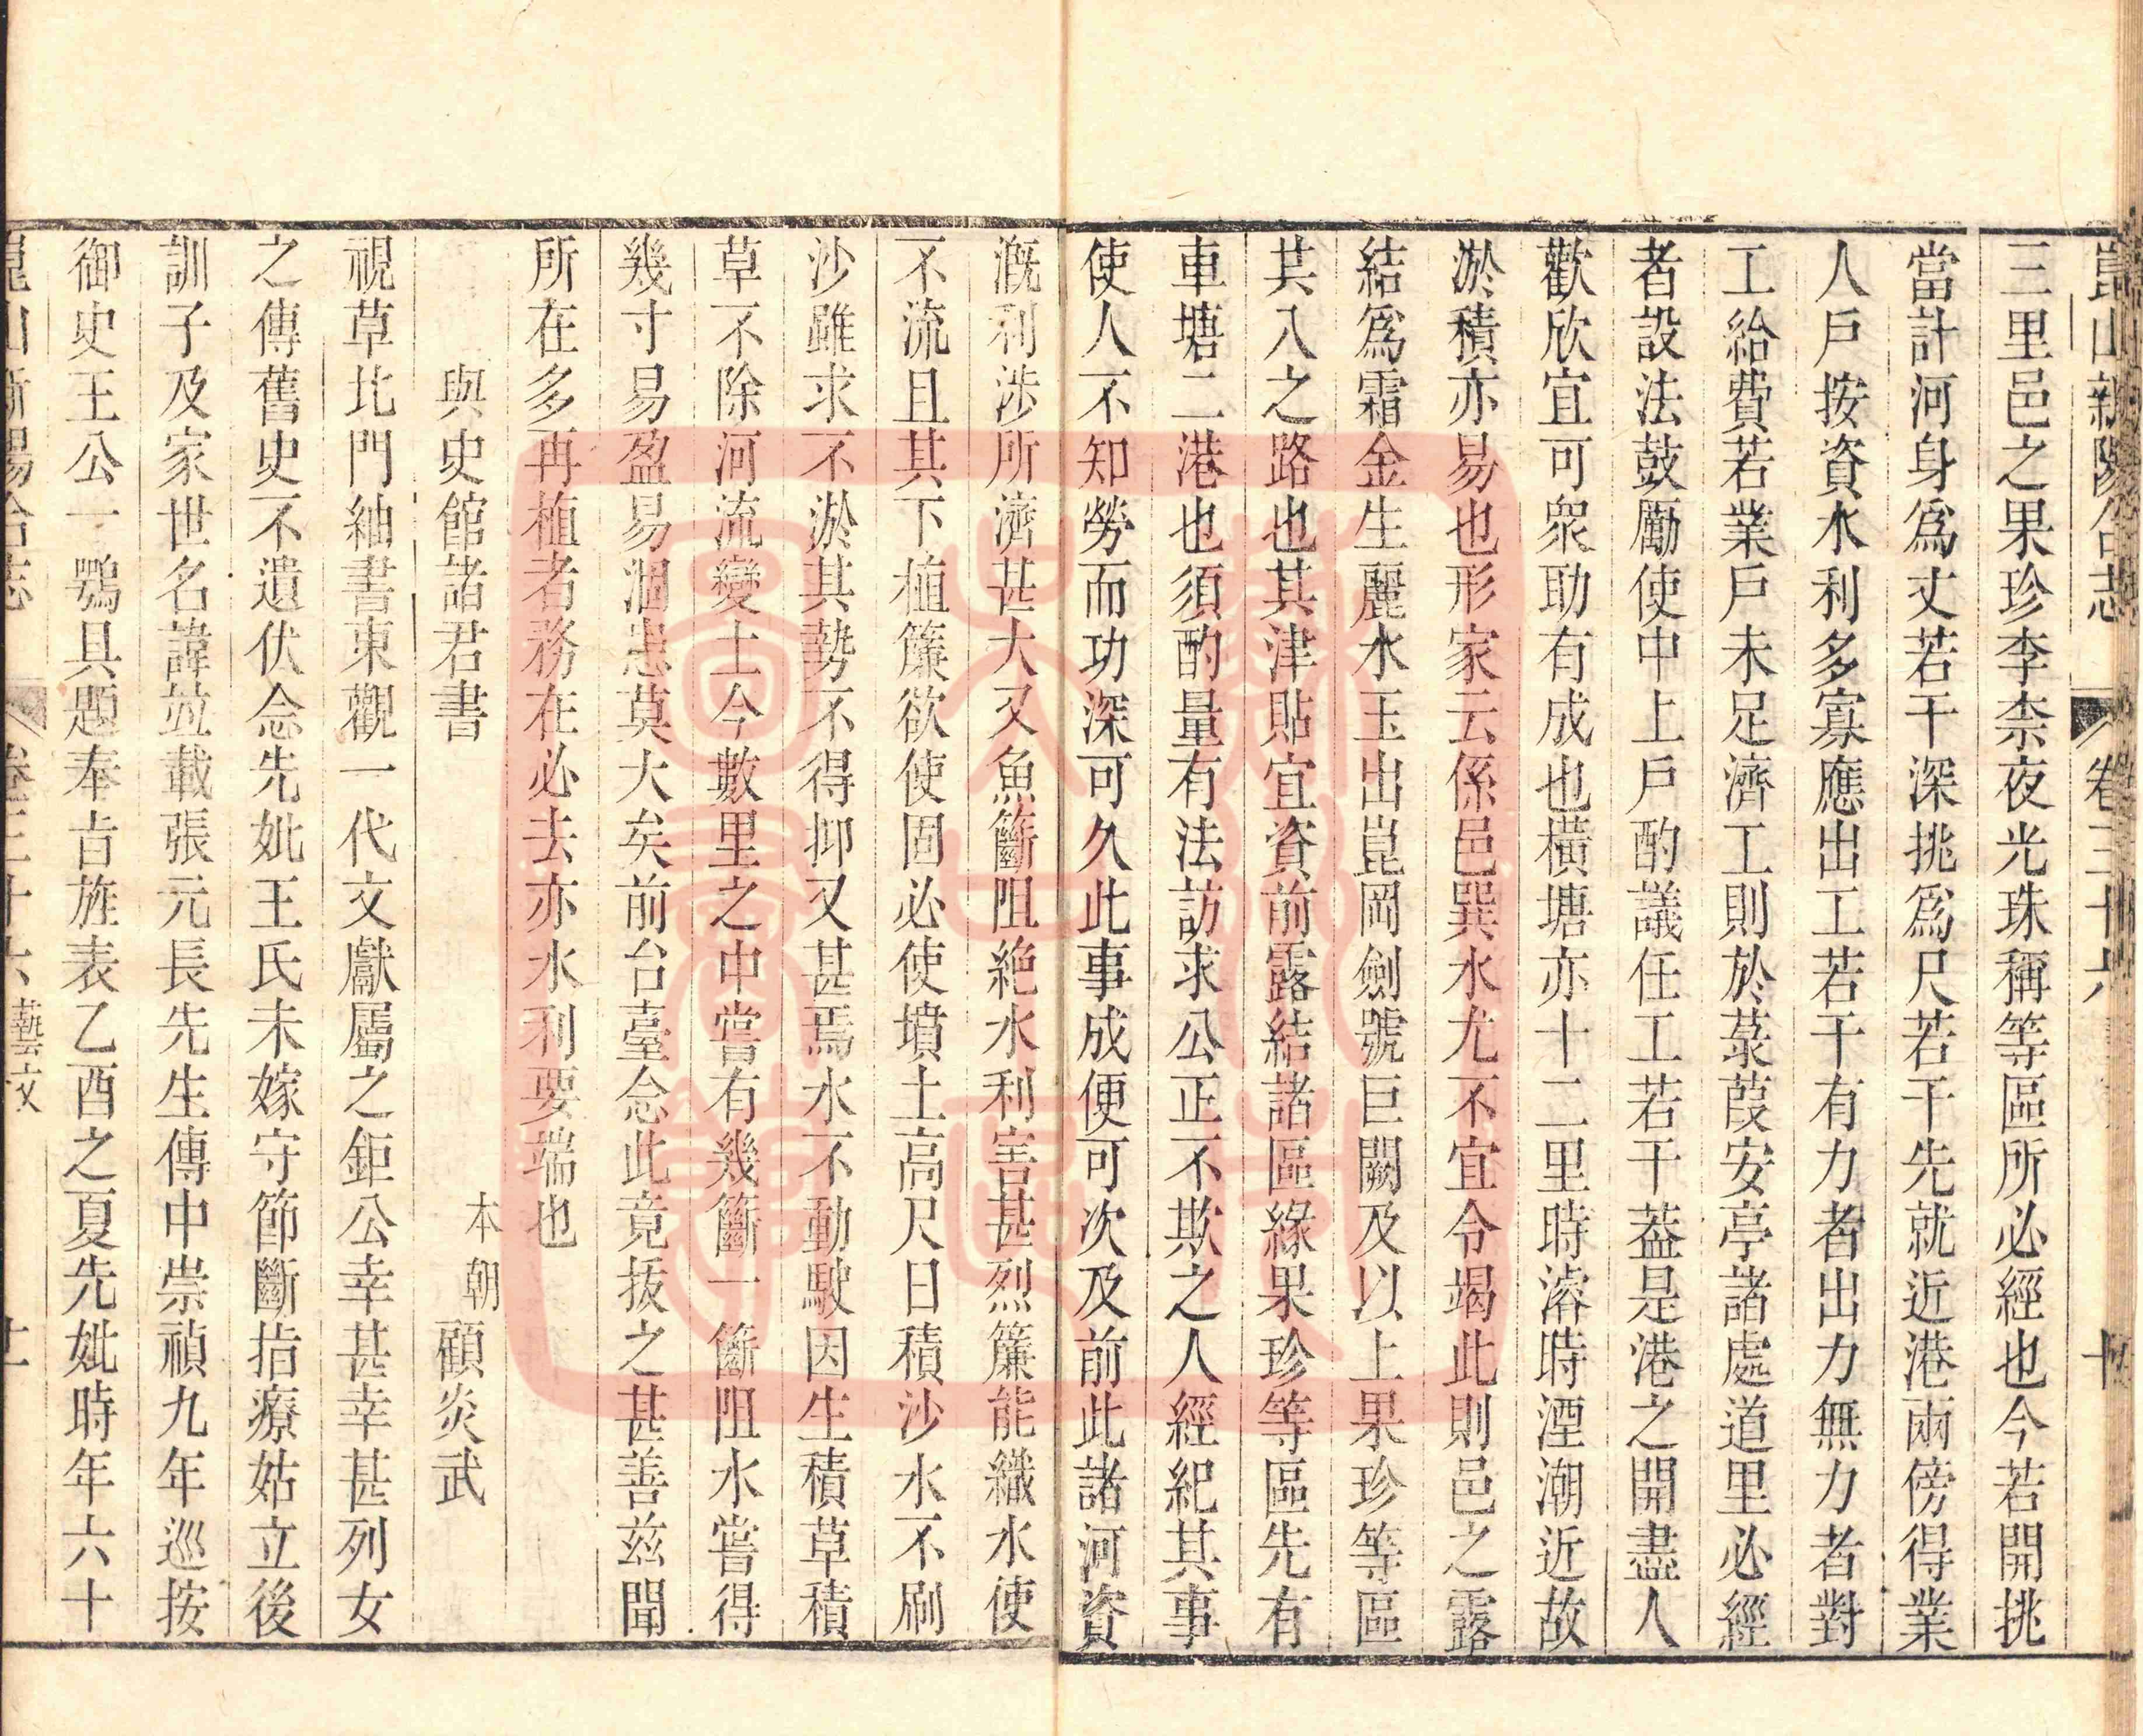 崑山新陽合志 卷三十六 十
三里邑之果珍李柰夜光珠稱等區所必經也今若開挑
當計河身爲丈若干深挑爲尺若干先就近港兩傍得業
人戶按資水利多寡應出工若干有力者出力無力者對
工給費若業戶未足濟工則於菉葭安亭諸處道里必經
者設法鼓勵使中上戶酌議任工若干葢是港之開盡人
歡欣宜可衆助有成也橫塘亦十二里時濬時湮潮近故
淤積亦易也形家云係邑巽水尤不宜令竭此則邑之露
結爲霜金生麗水玉出崑岡劍號巨闕及以上果珍等區
其入之路也其津貼宜資前露結諸區緣果珍等區先有
車塘二港也須酌量有法訪求公正不欺之人經紀其事
使人不知勞而功深可久此事成便可次及前此諸河資
漑利涉所濟甚大又魚籪阻絶水利害甚烈簾能織水使
不流且其下植簾欲使固必使墳土高尺日積沙水不刷
沙雖求不淤其勢不得抑又甚焉水不動駛因生積草積
草不除河流變土今數里之中嘗有幾籪一籪阻水嘗得
幾寸易盈易涸患莫大矣前台臺念此竟拔之甚善兹聞
所在多再植者務在必去亦水利要端也
與史館諸君書 本朝 顧炎武
視草北門紬書東觀一代文獻屬之鉅公幸甚幸甚列女
之傳舊史不遺伏念先妣王氏未嫁守節斷指療姑立後
訓子及家世名諱竝載張元長先生傳中崇禎九年巡按
御史王公一鶚具題奉㫖旌表乙酉之夏先妣時年六十
崑山新陽合志 卷三十六 藝文 十一